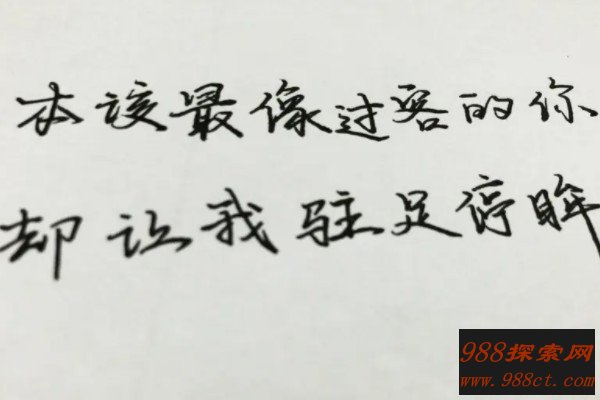 本该最像过客的你
却让我驻足停眸
988探索网
www.988ct.com